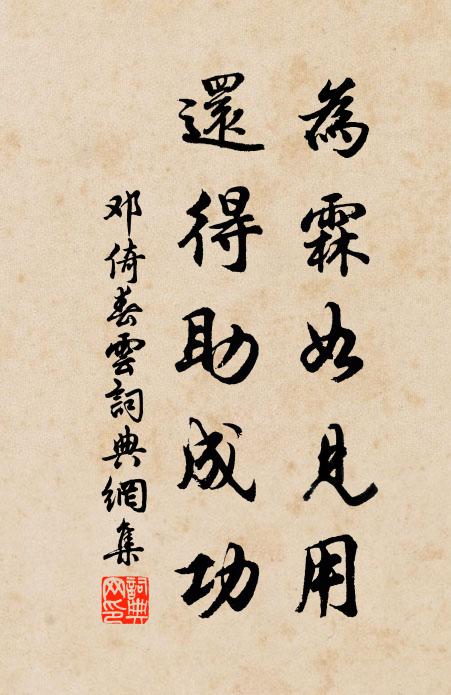 為霖如見用
還得助成功
邓倚春雲詞典網集
詞典
网印